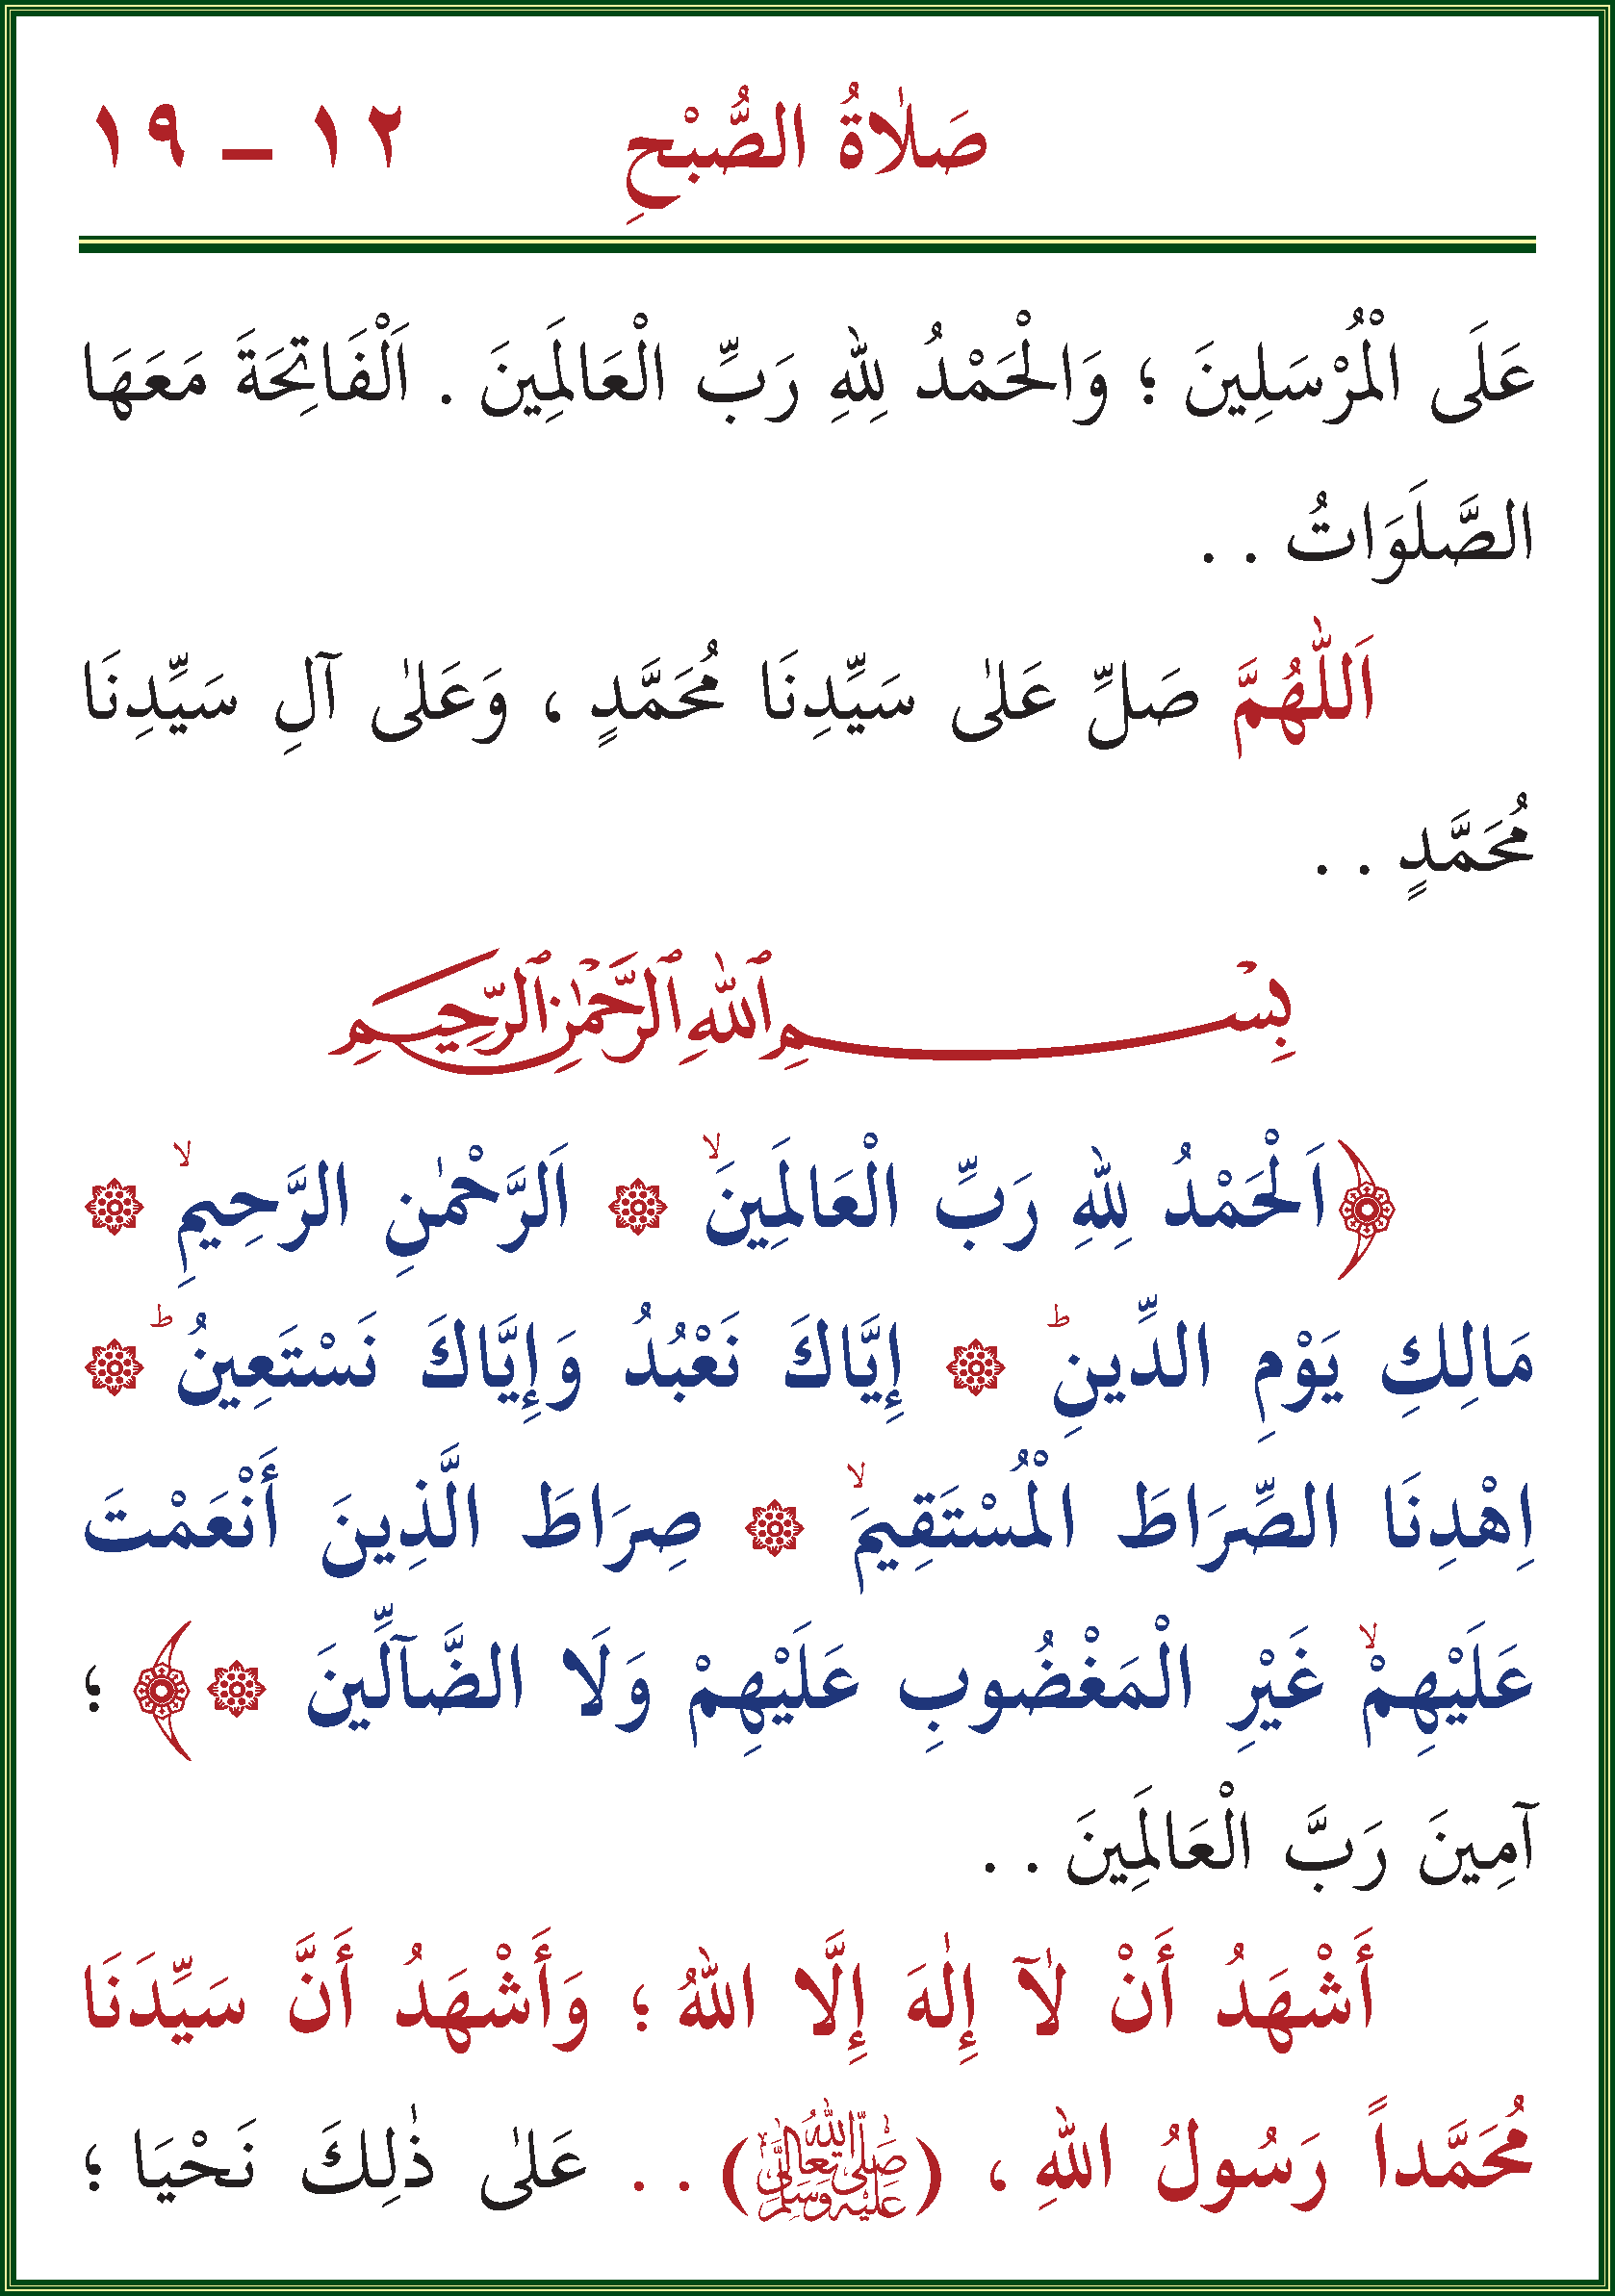 صَلَاةُ الصُّبْحِ ١٢ – ١٩
عَلَى الْمُرْسَلِينَ ؛ وَالْحَمْدُ لِلّٰهِ رَبِّ الْعَالَمِينَ . اَلْفَاتِحَةَ مَعَهَا
الصَّلَوَاتُ . .
اَللّٰهُمَّ صَلِّ عَلٰى سَيِّدِنَا مُحَمَّدٍ ، وَعَلٰى آلِ سَيِّدِنَا
مُحَمَّدٍ . .
بِسْمِ ٱللّٰهِ ٱلرَّحْمٰنِ ٱلرَّحِيمِ
﴿اَلْحَمْدُ لِلّٰهِ رَبِّ الْعَالَمِينَۙ ۞ اَلرَّحْمٰنِ الرَّحِيمِۙ ۞
مَالِكِ يَوْمِ الدِّينِۜ ۞ إِيَّاكَ نَعْبُدُ وَإِيَّاكَ نَسْتَعِينُۜ ۞
اِهْدِنَا الصِّرَاطَ الْمُسْتَقِيمَۙ ۞ صِرَاطَ الَّذِينَ أَنْعَمْتَ
عَلَيْهِمْۙ غَيْرِ الْمَغْضُوبِ عَلَيْهِمْ وَلَا الضَّآلِّينَ ۞﴾ ؛
آمِينَ رَبَّ الْعَالَمِينَ . .
أَشْهَدُ أَنْ لَآ إِلٰهَ إِلَّا اللّٰهُ ؛ وَأَشْهَدُ أَنَّ سَيِّدَنَا
مُحَمَّداً رَسُولُ اللّٰهِ ، (صَلَّى اللّٰهُ تَعَالٰى عَلَيْهِ وَسَلَّمَ) . . عَلٰى ذٰلِكَ نَحْيَا ؛